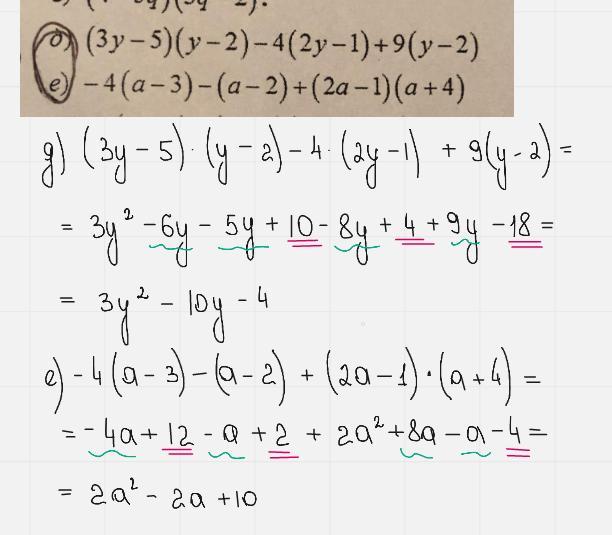 д) (3y−5)(y−2)−4(2y−1)+9(y−2)
е) −4(a−3)−(a−2)+(2a−1)(a+4)
д) (3y − 5)·(y − 2) − 4·(2y − 1) + 9(y − 2) =
= 3y² − 6y − 5y + 10 − 8y + 4 + 9y − 18 =
= 3y² − 10y − 4
е) − 4(a − 3) − (a − 2) + (2a − 1)·(a + 4) =
= − 4a + 12 − a + 2 + 2a² + 8a − a − 4 =
= 2a² − 2a + 10